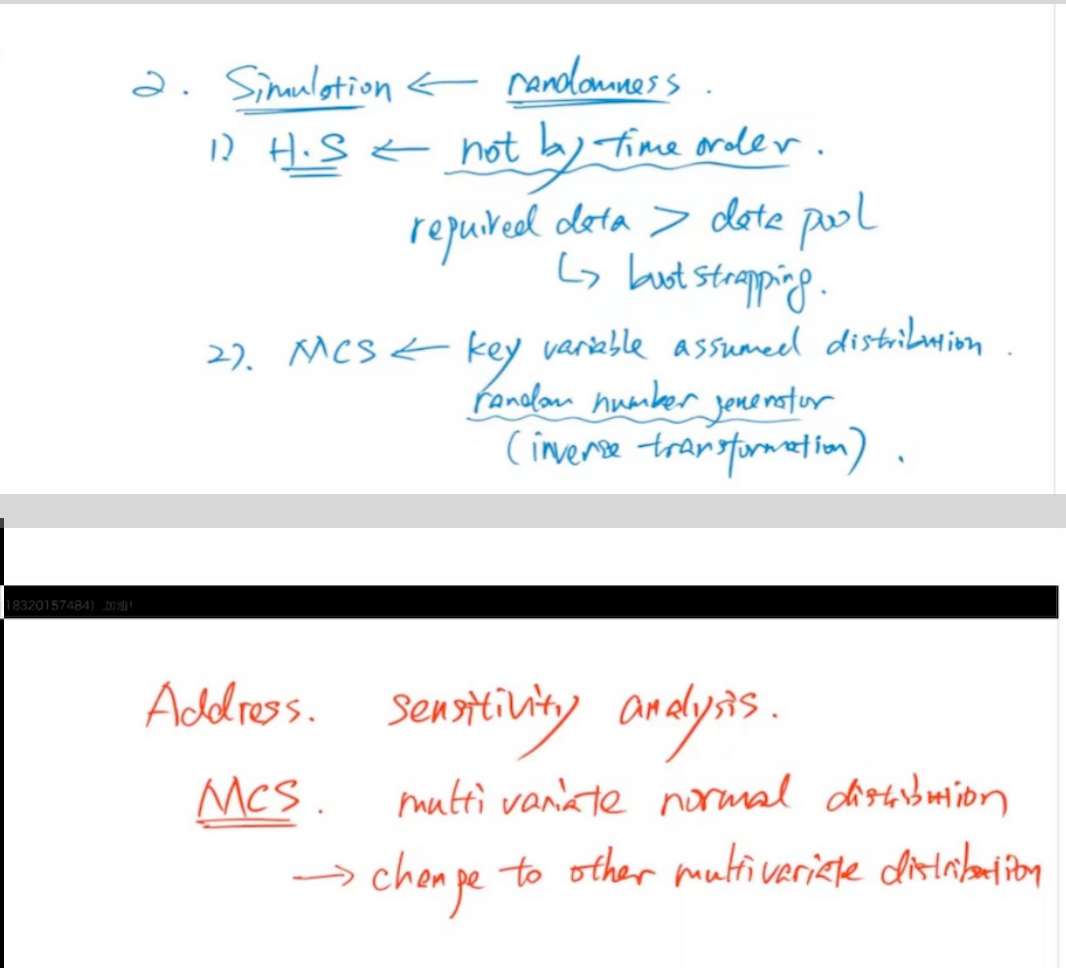 2. Simulation ← randomness.
1) H.S ← not by time order.
required data > data pool
↳ bootstrapping.
2). MCS ← key variable assumed distribution.
random number generator
(inverse transformation).
18320157484) .加油!
Address. sensitivity analysis.
MCS. multivariate normal distribution
→ change to other multivariate distribution